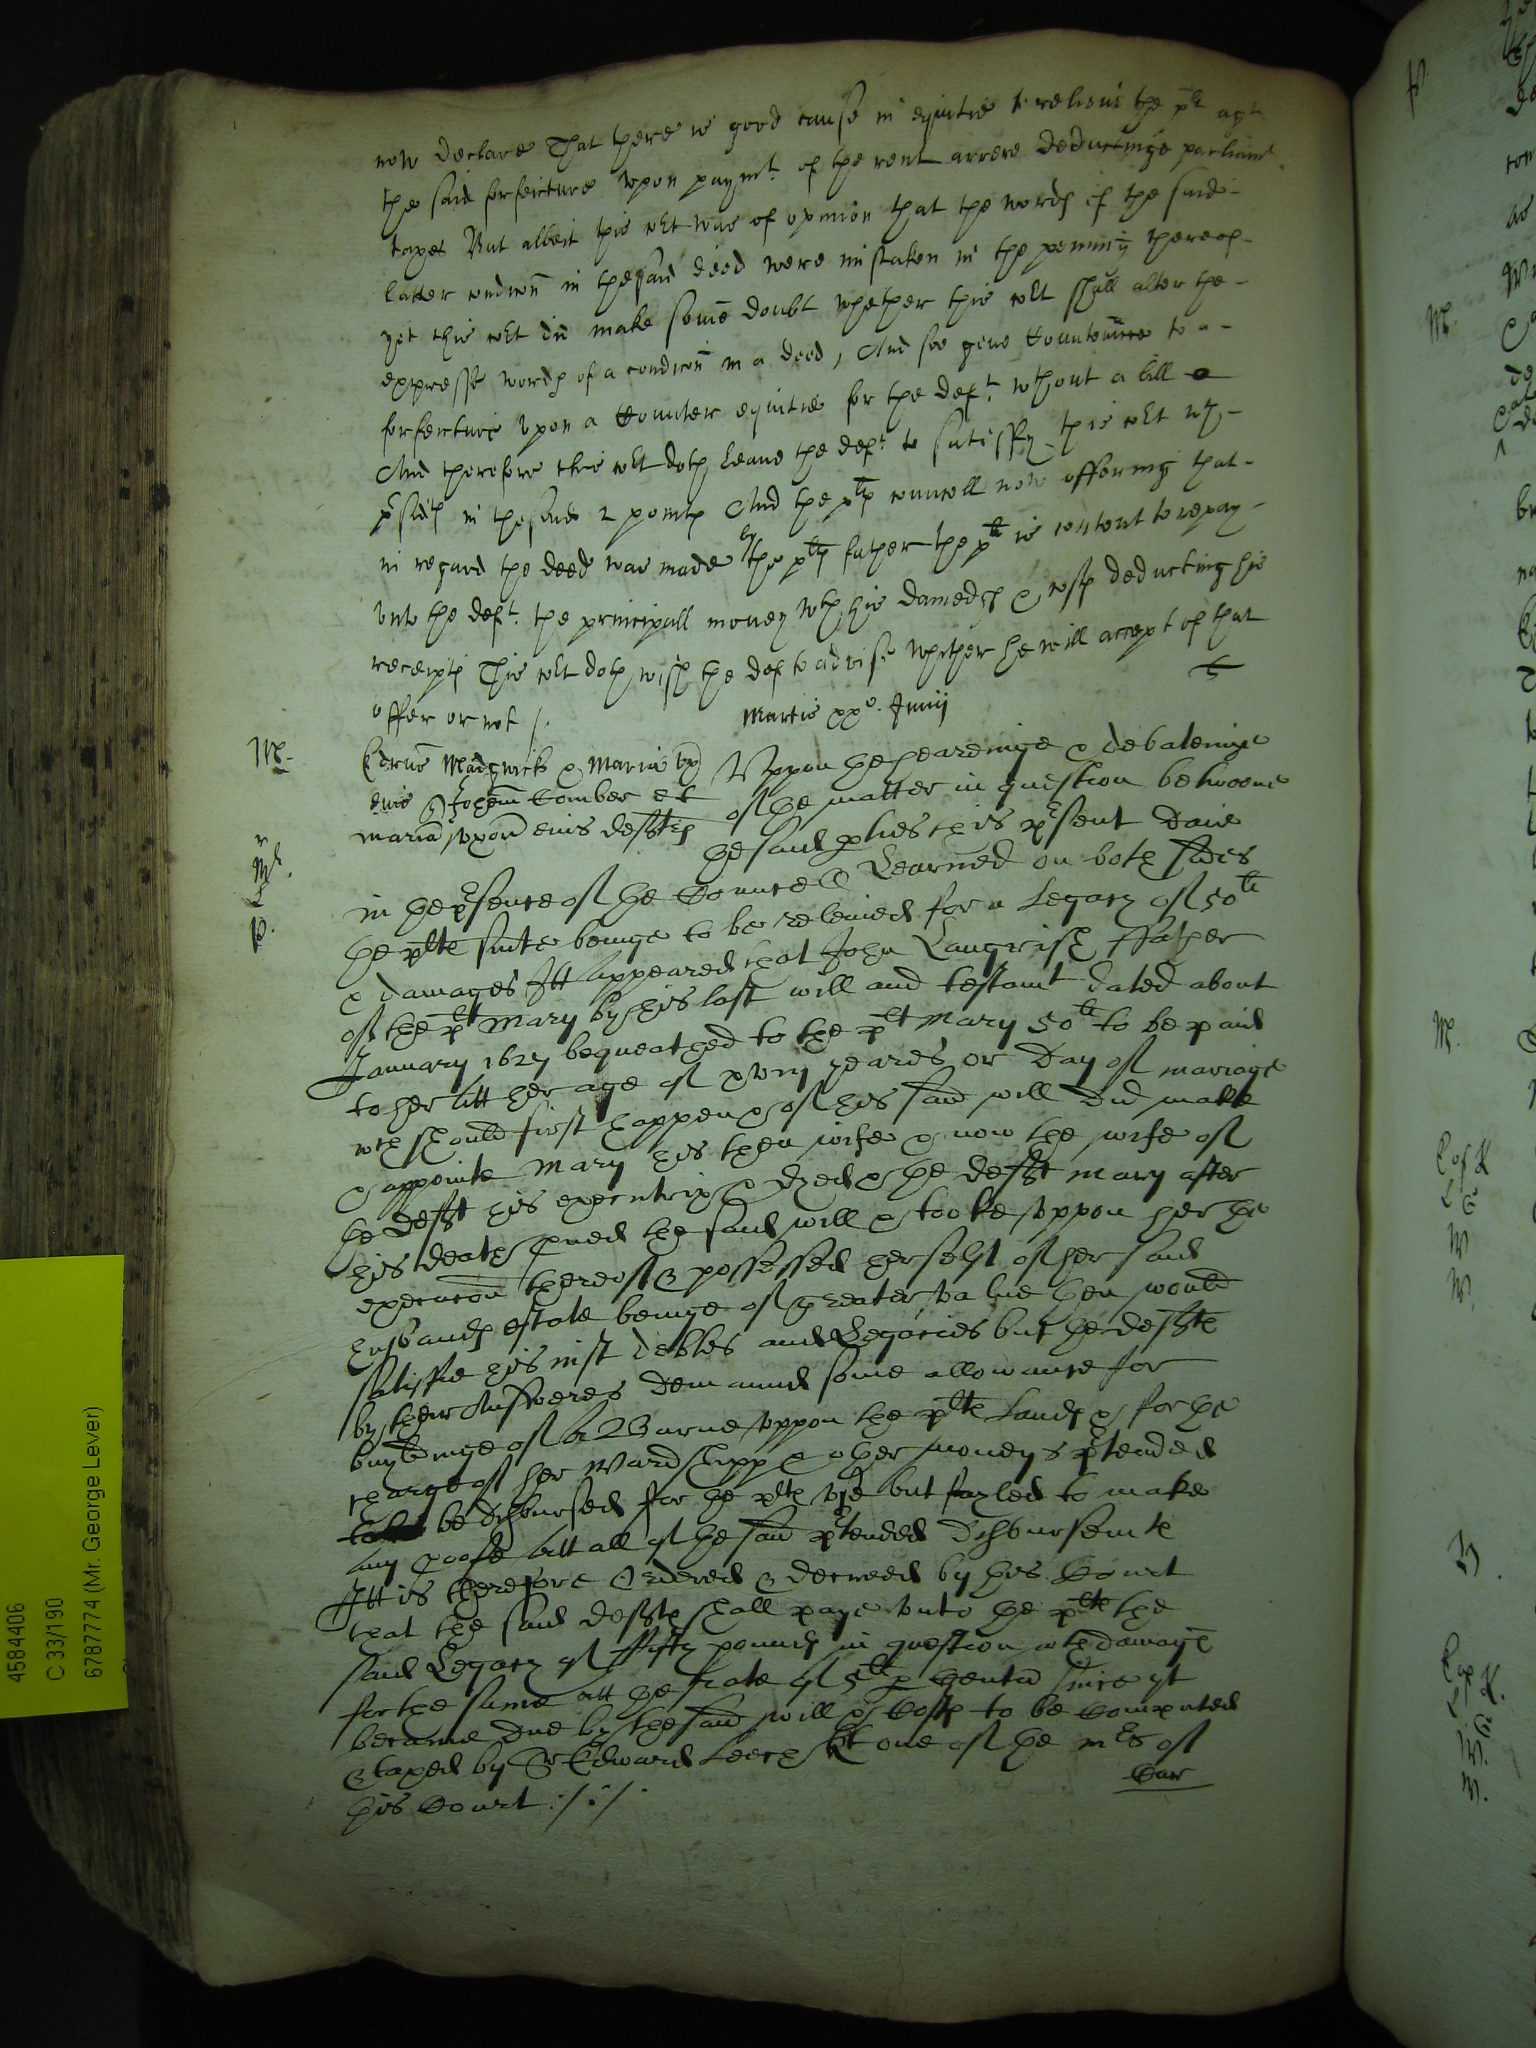 now declare That there is good cause in equitie to relieve the plt agt
the said forfeiture upon paymt. of the rent arrere deductinge parliamt
taxes But albeit this Cort was of opinion that the words of the said
latter condicon in the said deed were mistaken in the penning thereof
yet this Cort did make some doubt whether this Cort shall alter the
expresse words of a condicon in a deed, And soe give Countennce to a
forfeiture upon a Counter equitie for the deft. wthout a bill
And therefore this Cort doth leave the deft to satisfy this Cort wth
psidts in the said 2 points And the plts councell now offering that
in regard the deed was made by the plts father the plt is content to repay
unto the deft. the principall money wth his damages & costs deducting his
receipts This Cort doth wish the deft to advise whether he will accept of that
offer or not /.
Martis xxo. Junij
M.
Edrus Madgwick & Maria ux
eius Johem Comber et
Mariā Uxorē eius defts
Uppon the hearinge & debateinge
of the matter in question betweene
the said pties this pesent Daie
in the pesence of the Councell Learned on both sides
the plts suite beinge to be releived for a Legacy of 50li
& damages Itt appeared that John Langrish ffather
of the plt Mary by his last will and testamt dated about
January 1627 bequeathed to the plt Mary 50li to be paid
to her att her age of xviij yeares or Day of mariage
wch should first happen & of his said will did make
& appointe Mary his then wife & now the wife of
the Defft his executrix & dyed & the defft Mary after
his death pved the said will & tooke uppon her the
execucon thereof & possessed herselfe of her said
husbands estate beinge of greater value then would
satisfie his iust debtes and Legacies but the deffts
by their Answeres Demaund some allowance for
buyldinge of a Barne uppon the plts Lands & for the
charge of her Wardshipp & other moneys ptended
to be disbursed for the plts use but fayled to make
any proofe att all of the said ptended Disbursemts
Itt is therefore Ordered & decreed by this Court
that the said deffts shall paye unto the plts the
said Legacy of ffifty pounds in question wth damages
for the same att the rate of 5li p Centū since yt
became due by the said will & Costs to be Computed
& taxed by Sr Edward Leech kt one of the mrs of
this Court :/:/.
4584406
C 33/190
6787774 (Mr. George Lever)